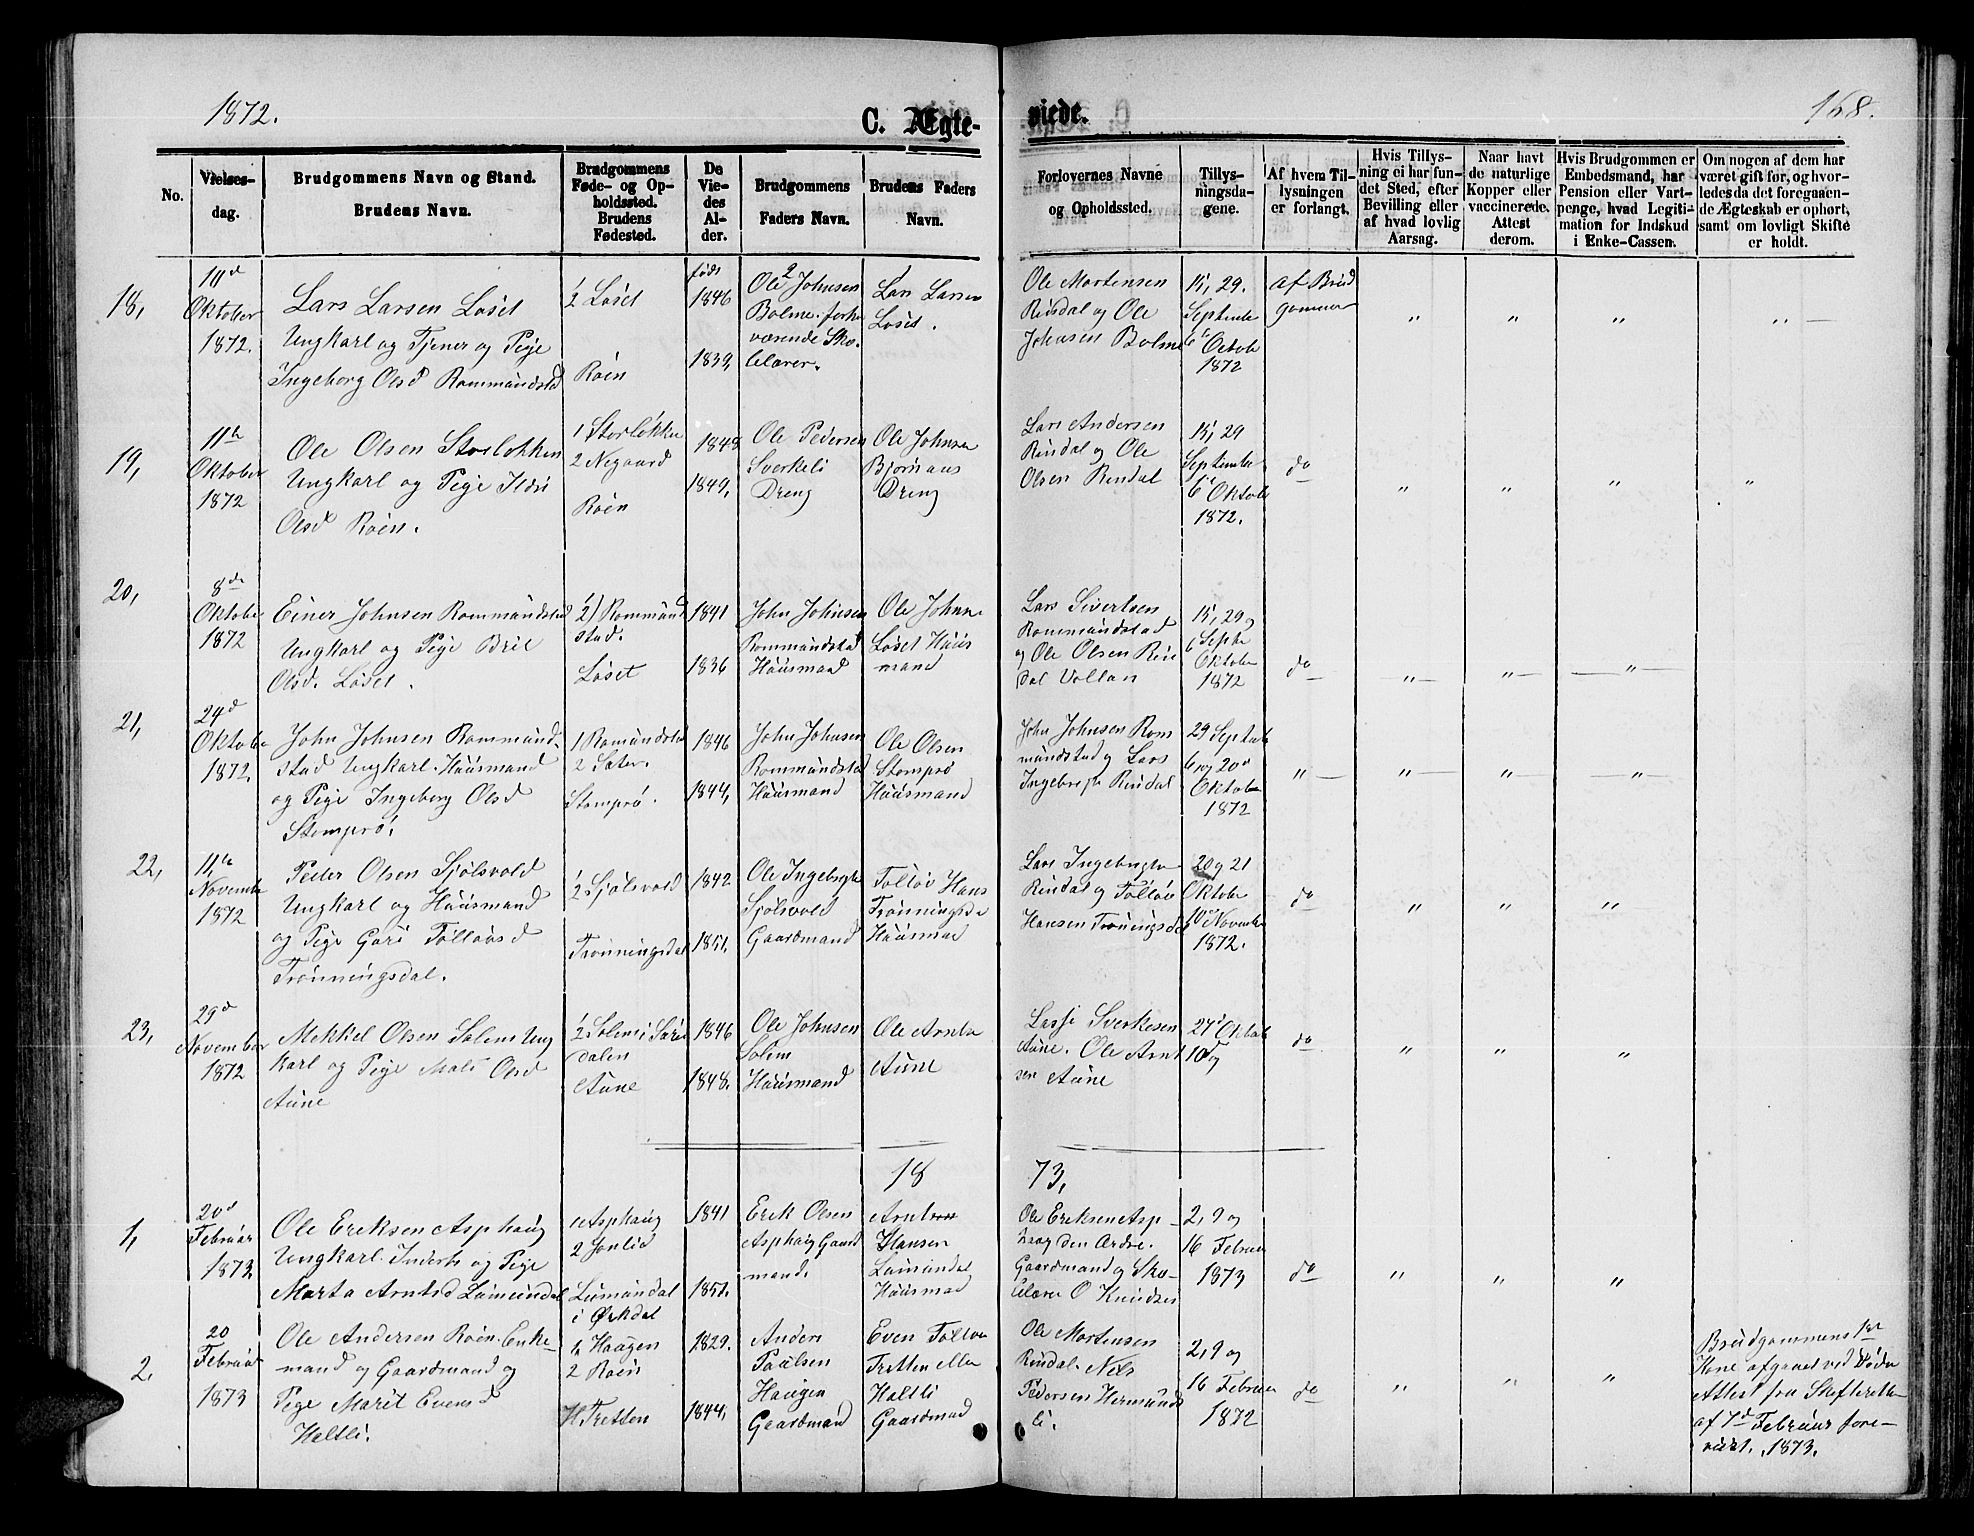 1872.
C. Ægte-
viede.
168.
No.
Vielses-
dag.
Brudgommens Navn og Stand.
Brudens Navn.
Brudgommens
Føde- og Op-
holdssted.
Brudens
Fødested.
De
Vie-
des
Al-
der.
Brudgommens
Faders Navn.
Brudens Faders
Navn.
Forlovernes Navne
og Opholdssted.
Tillys-
ningsda-
gene.
Af hvem Til-
lysningen
er forlangt.
Hvis Tillys-
ning ei har fun-
det Sted, efter
Bevilling eller
af hvad lovlig
Aarsag.
Naar havt
de naturlige
Kopper eller
vaccinerede.
Attest
derom.
Hvis Brudgommen er
Embedsmand, har
Pension eller Vart-
penge, hvad Legiti-
mation for Indskud
i Enke-Cassen.
Om nogen af dem har
været gift før, og hvor-
ledes da det foregaaen-
de Ægteskab er ophørt,
samt om lovligt Skifte
er holdt.
18,
Oktober
1872.
Lars Larsen Løset
Ungkarl og Tjener og Pige
Ingeborg Olsd Rommundstad
1/2 Løset
Røen
født
1846
1839,
2
Ole Johnsen
Bolme forhe
værende Sko-
lelærer.
1
Lars Larsen
Løset.
Ole Mortensen
Rindal og Ole
Johnsen Bolme
15, 29.
Septembe
6 Octobe
1872
af Brud
gommen
" " " "
19,
11te
Oktober
1872
Ole Olsen Storløkken
Ungkarl og Pige Ildri
Olsd Røen.
1 Storløkke
2 Negaard
Røen
1848
1849,
Ole Pedersen
Sverkeli
Dreng
Ole Johnsen
Bjørnaas
Dreng
Lars Andersen
Rindal og Ole
Olsen Rindal
15, 29
Septembe
6 Oktobe
1872.
do
" " " "
20,
8de
Oktober
1872
Einer Johnsen Rommundstad
Ungkarl og Pige Brit
Olsd. Løset.
1/2) Rommund
stad.
Løset
1841
1836
John Johnsen
Rommundstad
Huusmand
Ole Johnse
Løset Huus
mand
Lars Sivertsen
Rommundstad
og Ole Olsen Rin
dal Vollan
15, 29 og
6 Septbe
Oktobe
1872
do
" " "
21,
24d
Oktobe
1872,
John Johnsen Rommund-
stad Ungkarl. Huusmand
og Pige Ingeborg Olsd
Stomprø.
1 Romundstad
2 Sæter.
Stomprø.
1846
1844,
John Johnsen
Rommundstad
Huusmand
Ole Olsen
Stomprø
Huusmand
John Johnsen Rom
mundstad og Lars
Ingebregts Rindal
29 Septbe
6 og 20d
Oktober
1872
" " " "
22,
11te
Novembe
1872
Peder Olsen Sjølsvold
Ungkarl og Huusmand
og Pige Guri Tolløvsd
Trønningsdal.
1/2 Sjølsvold
Trønningsdal
1842
1851.
Ole Ingebrigts
Sjølsvold
Gaardmand
Tolløv Hans
Trønningsda
Huusmad
Lars Ingebrigts
Rindal og Tolløv
Hansen Trøningsda
20 og 21
Oktobe
10d Novembe
1872.
do
" " "
23,
29d
November
1872
Mekkel Olsen Solem Ung
karl og Pige Mali Olsd
Aune
1/2 Solem i Suren
dalen
Aune
1846
1848.
Ole Johnsen
Solem
Huusmand
Ole Arntse
Aune
Lasse Sverkesen
Aune. Ole Arnt
sen Aune
27d Oktobe
10d
do
" " "
18 73,
1,
20d
Februar
1873
Ole Eriksen Asphaug
Ungkarl Inderst og Pige
Marta Arntsd Lumundal
1 Asphaug
2 Jønlid
Lumundal
i Ørkdal
1841
1851.
Erik Olsen
Asphaug Gaard
mand.
Arnt
Hansen
Lomundal
Huusmad
Ole Eriksen Asp-
haug den Ældre.
Gaardmand og Sko-
lelærer O Knudsen
2, 9 og
16 Februar
1873
do
" " "
2.
20
Februar
1873
Ole Andersen Røen. Enke-
mand og Gaardmand og
Pige Marit Evensd
Haltli.
1 Haugen
2 Røen
Tretten
1829.
1844,
Anders
Paulsen
Haugen
Gaardmand
Even Tollev
Tretten eller
Haltli
Gaardmad
Ole Mortensen
Rindal. Nils
Pedersen Hermunds
li.
2, 9 og
16 Februar
1872
do
" " "
Brudgommens 1ste
Kone afgaaet ved Døden
Attest fra Skifteretten
af 7d Februar fore-
viist. 1873.